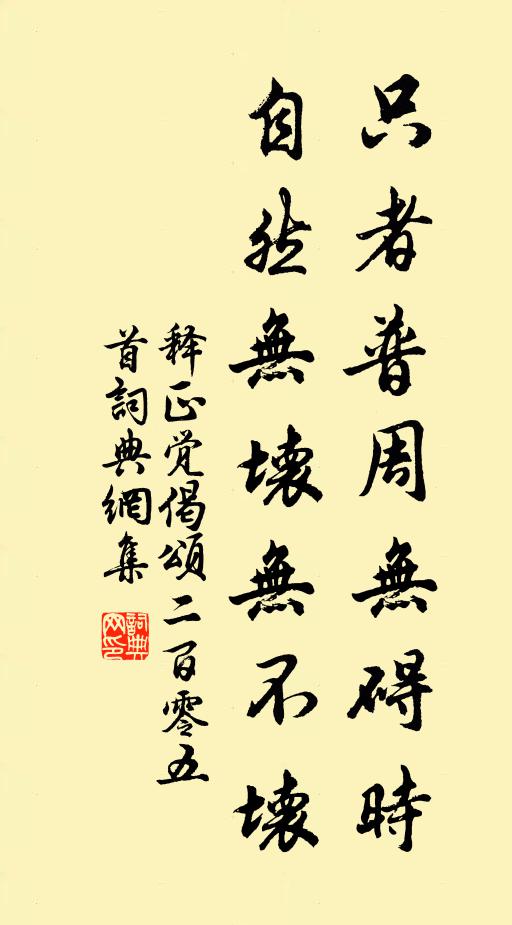 只者普周無碍時
自然無壊無不壊
释正觉偈頌二百零五
首詞典網集
詞典网印